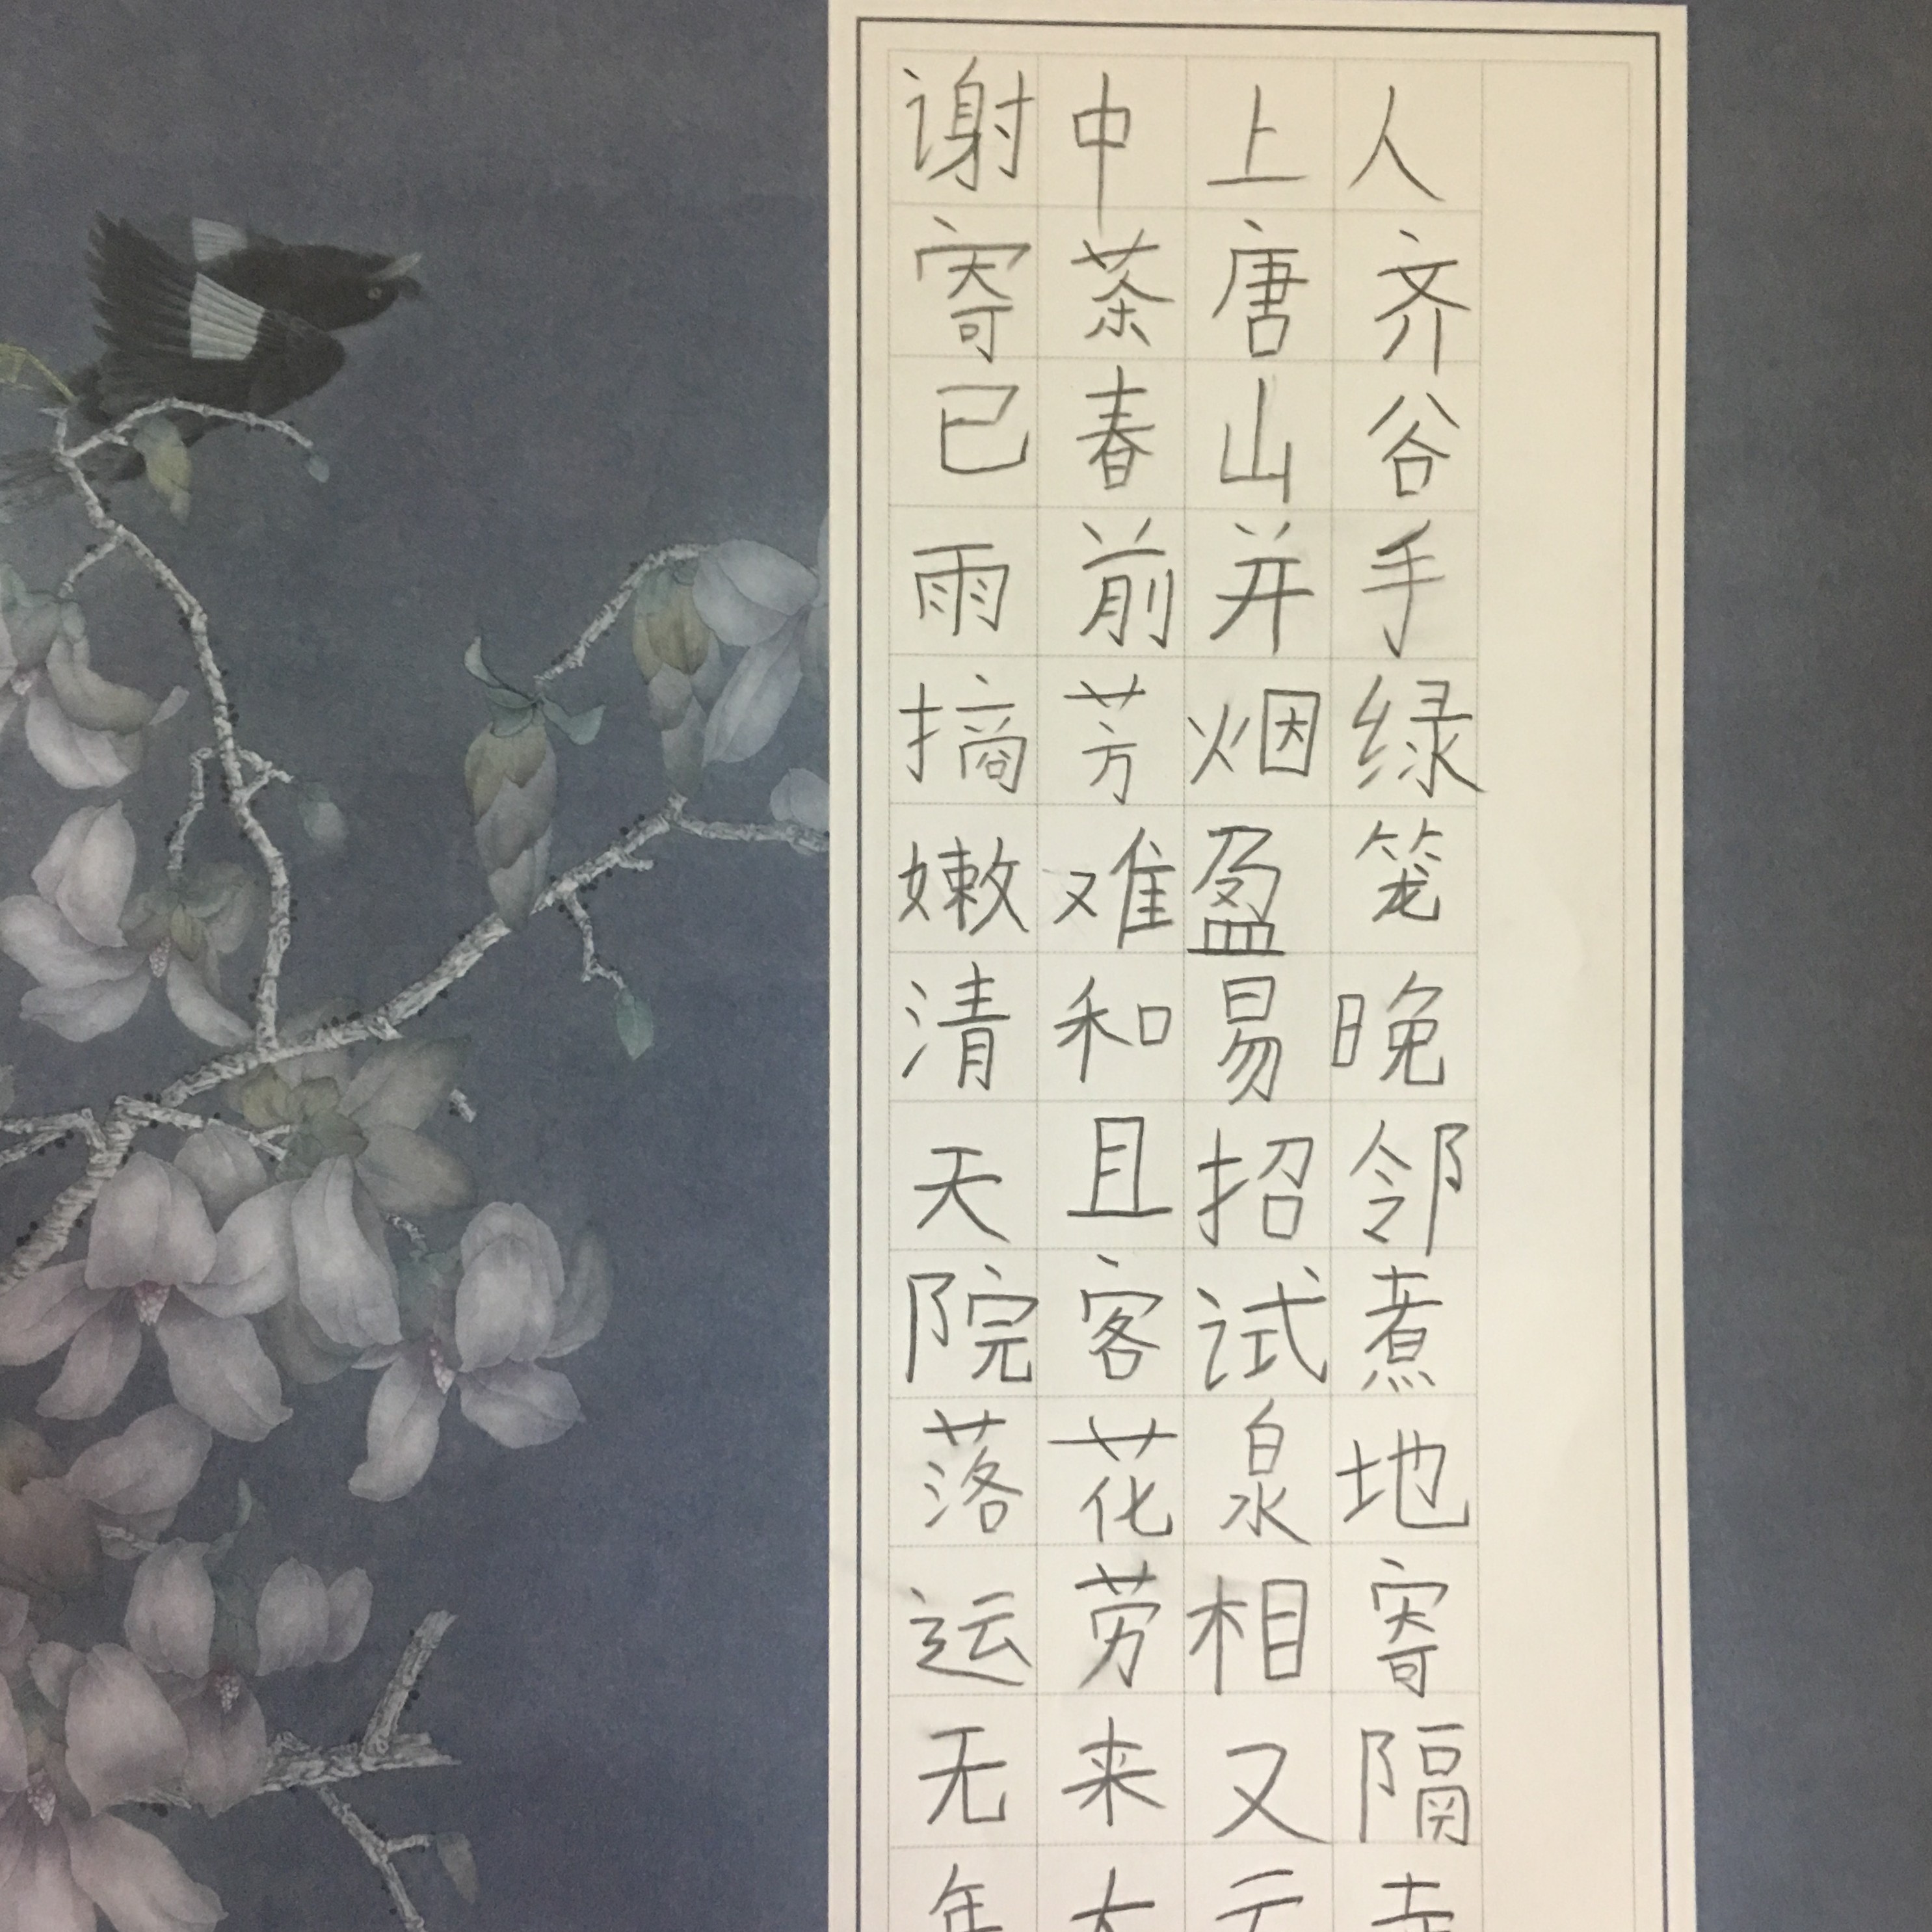 谢中上人
寄茶唐齐
已春山谷
雨前并手
摘芳烟绿
嫩难盈笼
清和易晚
天且招邻
院客试煮
落花泉地
运劳相寄
无来又隔
年